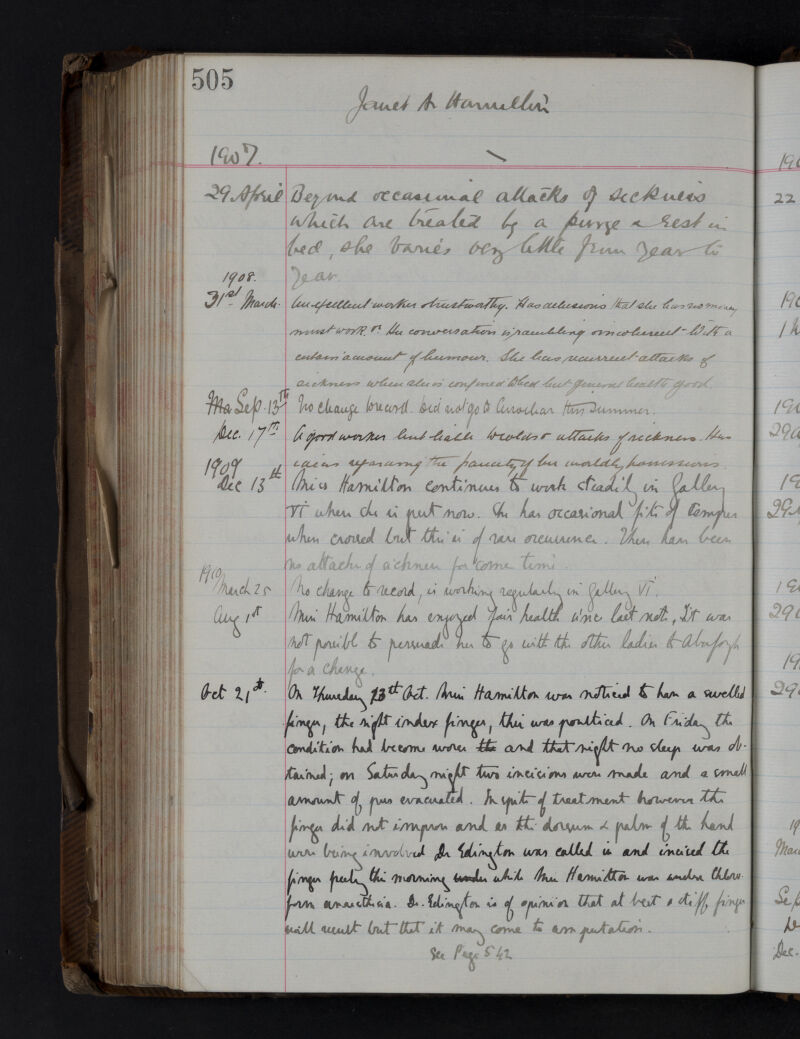 505
Janet A Hamilton
1907.
29 April Beyond occasional attacks of sickness
which are treated by a purge & rest in
bed, she varies very little from year to
year.
1908.
31st March. An excellent worker & trustworthy. Has delusions that she has no money
must work &c. Her conversation is rambling & incoherent with a
certain amount of humour. She has recurrent attacks of
sickness when she is confined to bed but general health good.
Ma Sep. 13th No change to record. Did not go to this summer.
Dec. 17th A good worker but liable to colds & attacks of sickness. Has
ideas regarding the paucity of her worldly possessions.
1909
Dec 13th Miss Hamilton continues to work steadily in Gallery
VI where she is put now. She has occasional fits of temper
when crossed but this is of rare occurrence. There have been
no attacks of sickness for some time.
1910
March 25 No change to record, is working regularly in Gallery VI.
Aug 1st Miss Hamilton has enjoyed fair health since last note, It was
not possible to persuade her to go with the other ladies to Aberfoyle
for a change.
Oct 21st. On Thursday 13th Oct. Miss Hamilton was noticed to have a swelled
finger, the right index finger, this was poulticed. On Friday the
condition had become worse the and that night no sleep was ob-
tained; on Saturday night two incisions were made and a small
amount of pus evacuated. In spite of treatment however the
finger did not improve and as the dorsum & palm of the hand
were being involved Dr Edington was called in and incised the
finger freely this morning under while Miss Hamilton was under Chloro-
form anaesthesia. Dr. Edington is of opinion that at best a stiff finger
will result but that it may come to amputation.
See Page 542
22